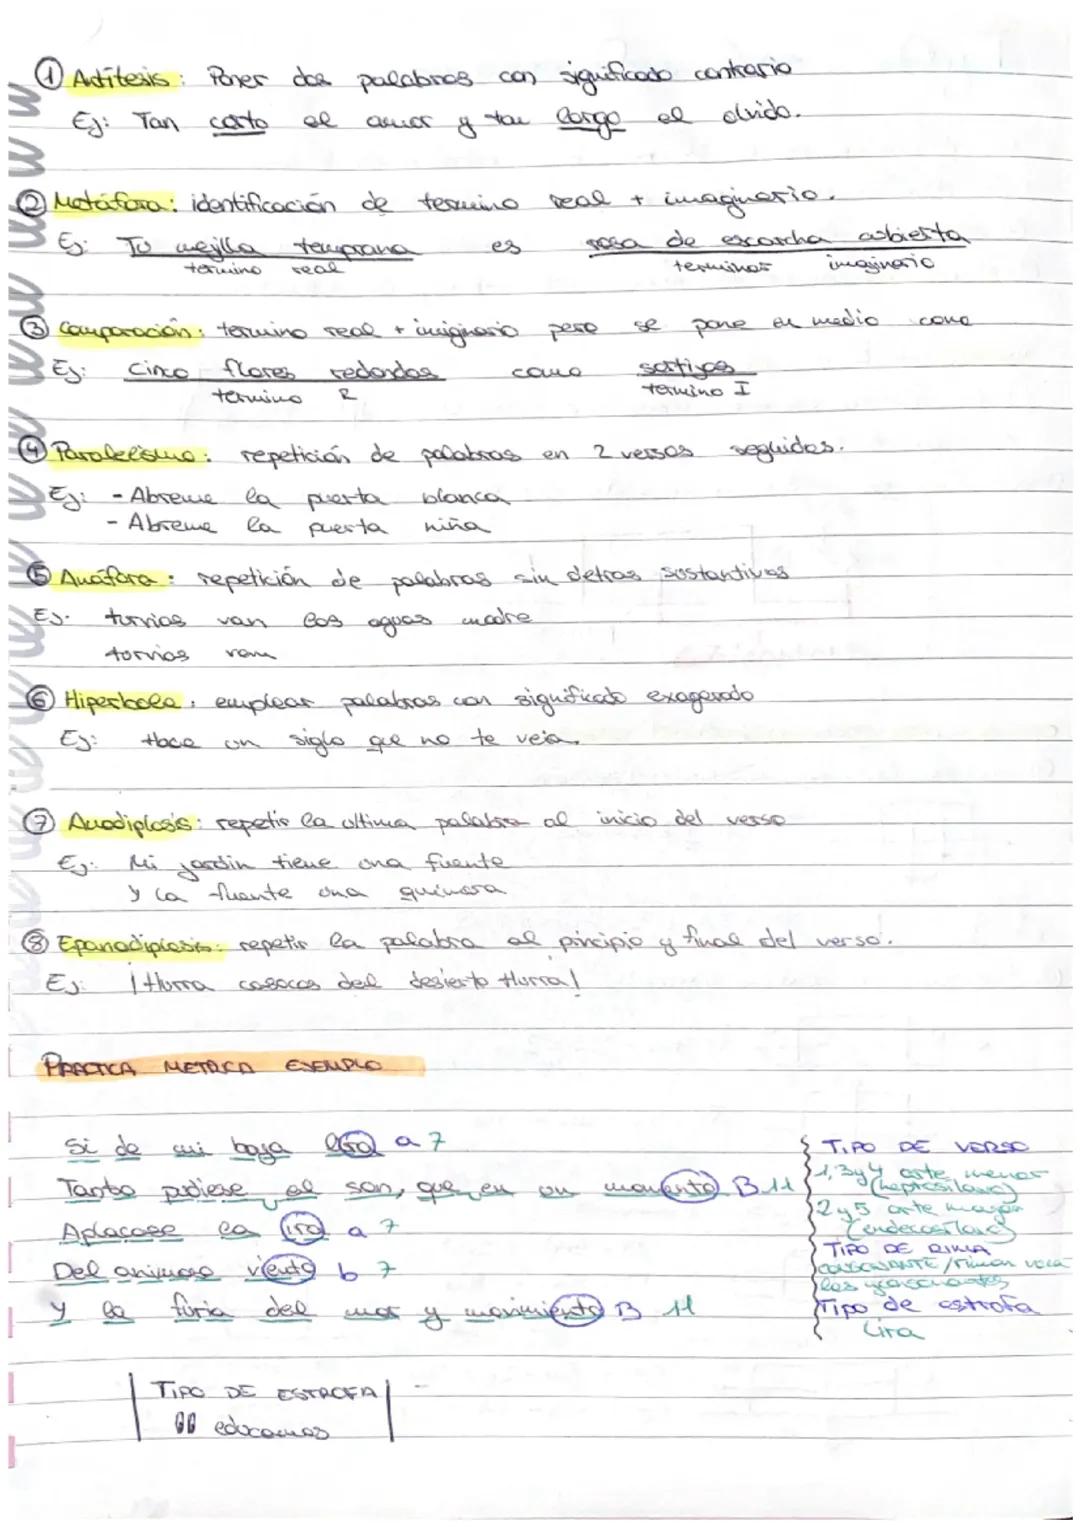 ① Antítesis: Poner dos palabras con significado contrario
Ej: Tan corto el amor y tan largo el olvido.
② Metáfora: identificación de termino real + imaginario.
Ej: Tu mejilla temprana es rosa de escarcha cubierta
término real terminos imaginario
③ Comparación: termino real + imiginario pero se pone en medio como
Ej: Cinco flores redondas como sortijas
termino R termino I
④ Paralelismo: repetición de palabras en 2 versos seguidos.
Ej: - Abreme la puerta blanca
- Abreme la puerta niña
⑤ Anáfora: repetición de palabras sin detras sustantivos
Ej. turvias van las aguas madre
torvias van
⑥ Hiperbole: emplear palabras con significado exagerado
Ej: Hace un siglo que no te veia.
⑦ Anodiplosis: repetir la ultima palabra al inicio del verso
Ej: Mi jardin tiene una fuente
y la fuente una quimera
⑧ Epanadiplosis: repetir la palabra al principio y final del verso.
Ej: ¡Hurra cosacos del desierto Hurra!
PRACTICA METRICA EJEMPLO
Si de mi baja lira a 7
Tanto pudiese el son, que en un momento B 11
Aplacase la ira a 7
Del animoso viento b 7
y la furia del mar y movimiento B 11
TIPO DE VERSO
1, 3 y 4 arte menor
(heptasilavo)
2 y 5 arte mayor
(endecasilavo)
TIPO DE RIMA
CONSONANTE / riman voca
les y consonantes
Tipo de estrofa
Lira
TIPO DE ESTROFA
educamos